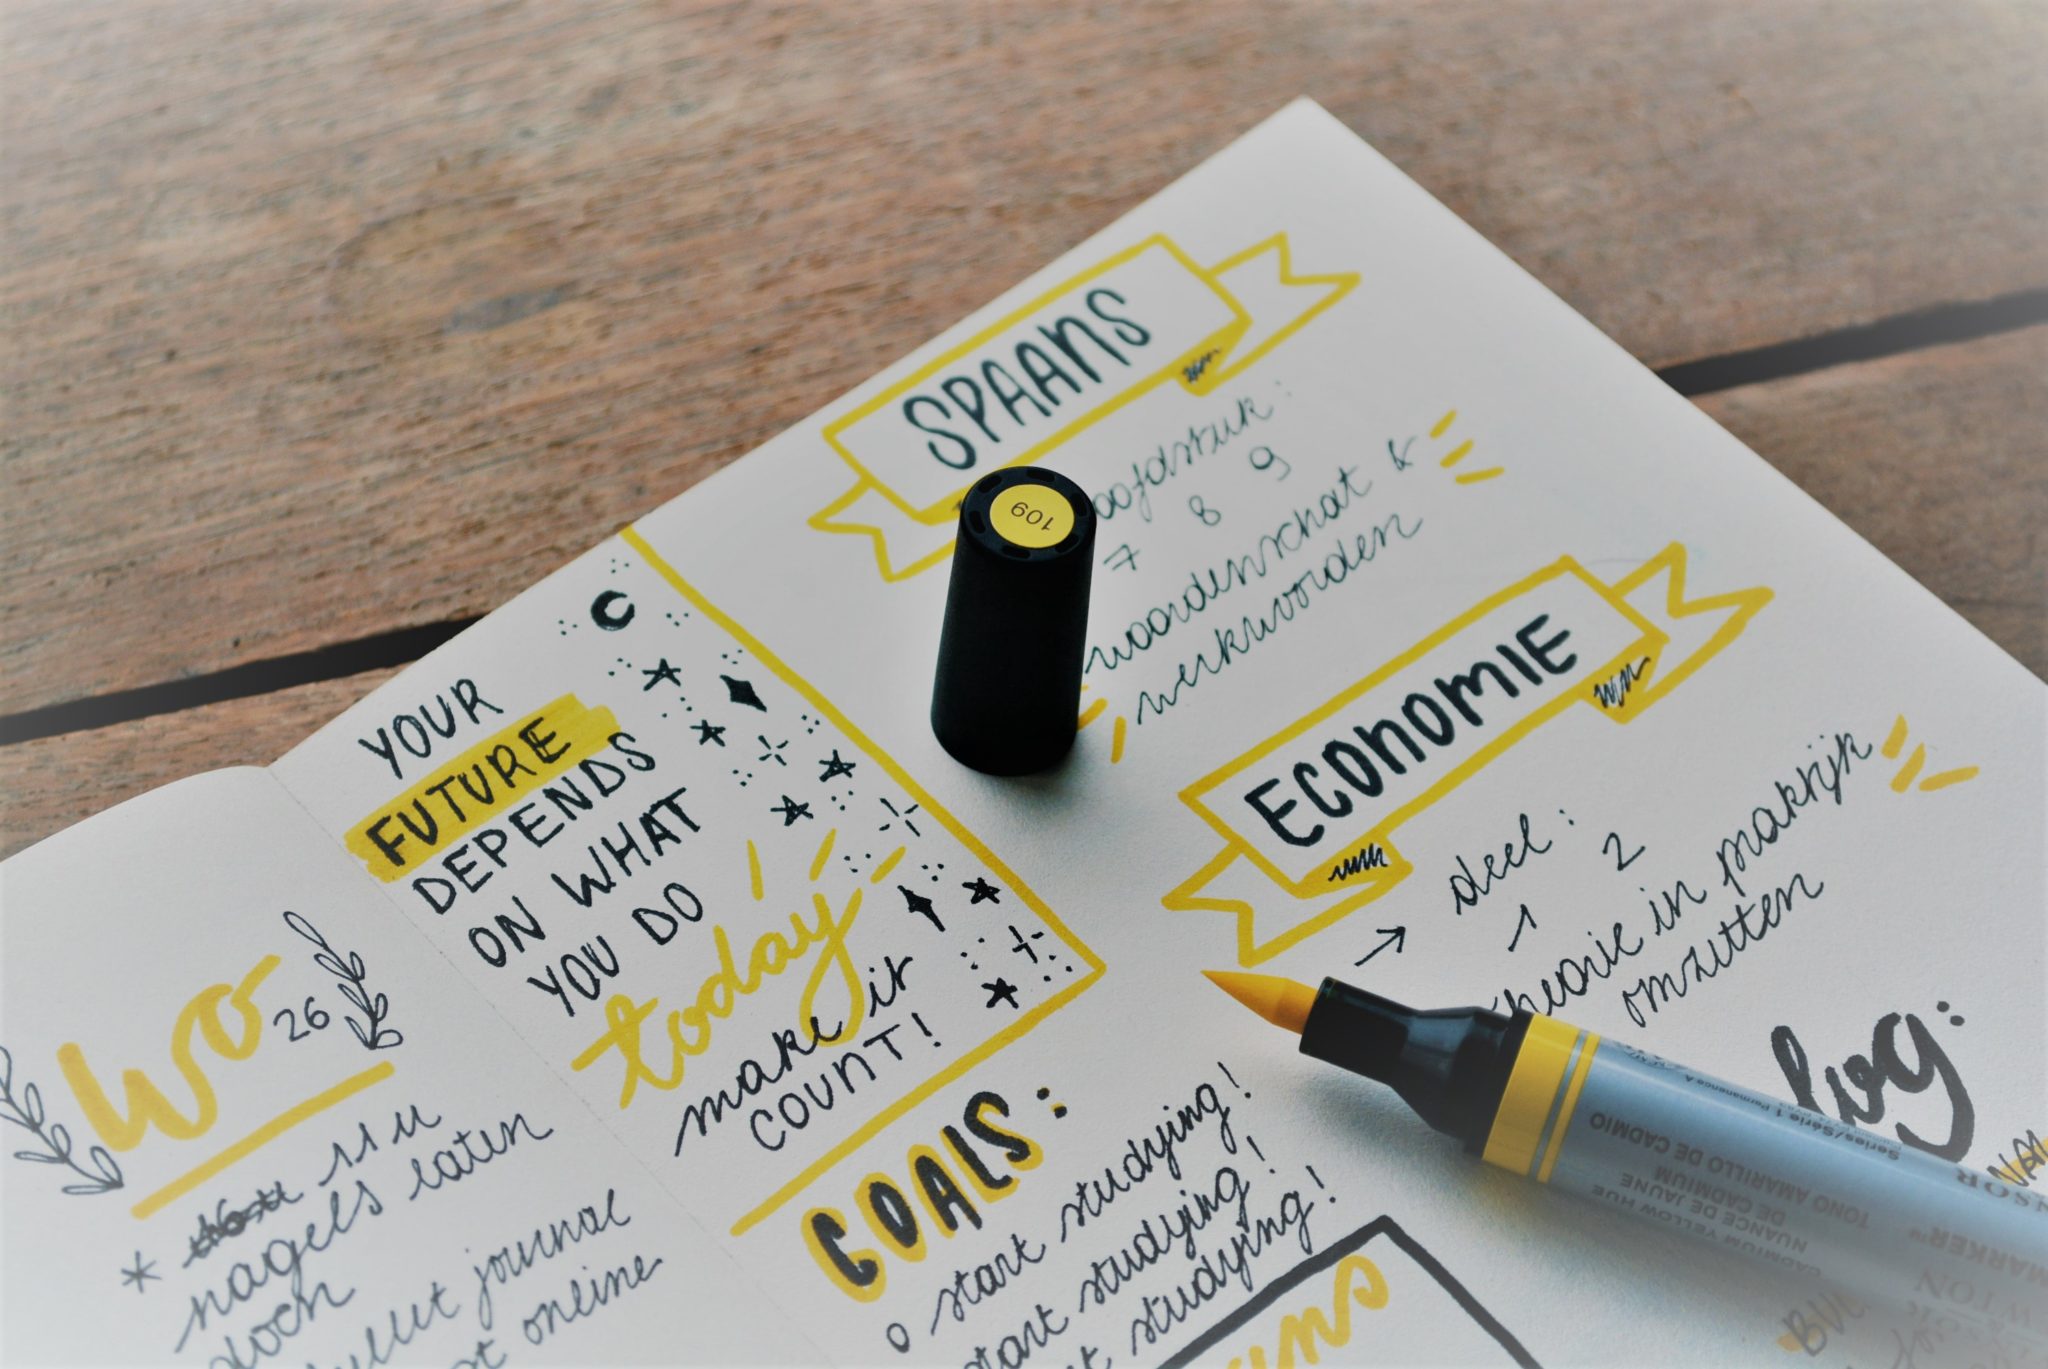 SPAANS
7 8 9
woordenschat &
werkwoorden
ECONOMIE
→ deel :
1 2
theorie in praktijk
omzetten
YOUR
FUTURE
DEPENDS
ON WHAT
YOU DO
today
make it
COUNT!
GOALS:
o start studying!
start studying!
studying!
WO
26
* 11 u
nagels laten
doen
bullet journal
online
109
Series/Série 1 Permanence A
CADMIUM YELLOW HUE
NUANCE DE JAUNE
DE CADMIUM
TONO AMARILLO DE CADMIO
MARKER™